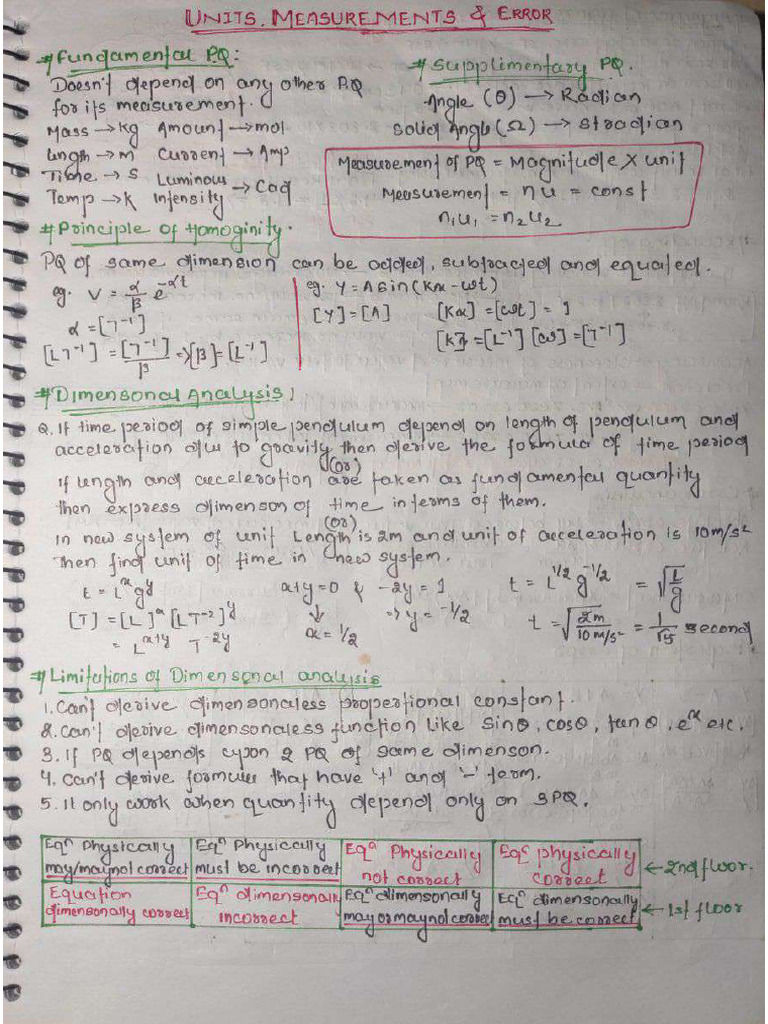 UNITS, MEASUREMENTS & ERROR
# Fundamental P.Q:
Doesn't depend on any other P.Q
for its measurement.
Mass → kg Amount → mol
Length → m Current → Amp
Time → s Luminous → Cad
Temp → K Intensity
# Supplimentary PQ.
Angle (θ) → Radian
Solid Angle (Ω) → Stradian
Measurement of PQ = Magnitude × unit
Measurement = nu = const
n₁u₁ = n₂u₂
# Principle of Homoginity.
PQ of same dimension can be added, subtracted and equated.
eg. V = α/β e^-αt
α = [T⁻¹]
[LT⁻¹] = [T⁻¹]/β => [β] = [L⁻¹]
eg. Y = A sin(Kx - ωt)
[Y] = [A] [Kx] = [ωt] = 1
[K] = [L⁻¹] [ω] = [T⁻¹]
# Dimensonal Analysis!
Q. If time period of simple pendulum depend on length of pendulum and
acceleration due to gravity then derive the formula of time period
(or)
If length and acceleration are taken as fundamental quantity
then express dimenson of time in terms of them.
(or)
In new system of unit Length is 2m and unit of acceleration is 10m/s²
Then find unit of time in new system.
t = L^x g^y x+y=0 & -2y = 1 t = L^1/2 g^-1/2 = √(L/g)
[T] = [L]^x [LT⁻²]^y ↓ => y = -1/2
= L^x+y T^-2y x = 1/2 t = √(2m/10m/s²) = 1/√5 second
# Limitations of Dimensonal analysis
1. Can't derive dimensonaless propertional constant.
2. Can't derive dimensonaless function like sinθ, cosθ, tanθ, e^x etc.
3. If PQ depends upon 2 PQ of same dimenson.
4. Can't derive formules that have '+' and '-' term.
5. It only work when quantity depend only on 3PQ.
Eqⁿ Physically may/maynot correct | Eqⁿ Physically must be incorrect | Eqⁿ Physically not correct | Eqⁿ physically correct ← 2nd floor.
Equation dimensonally correct | Eqⁿ dimensonally incorrect | Eqⁿ dimensionally may or maynot correct | Eqⁿ dimensonally must be correct ← 1st floor